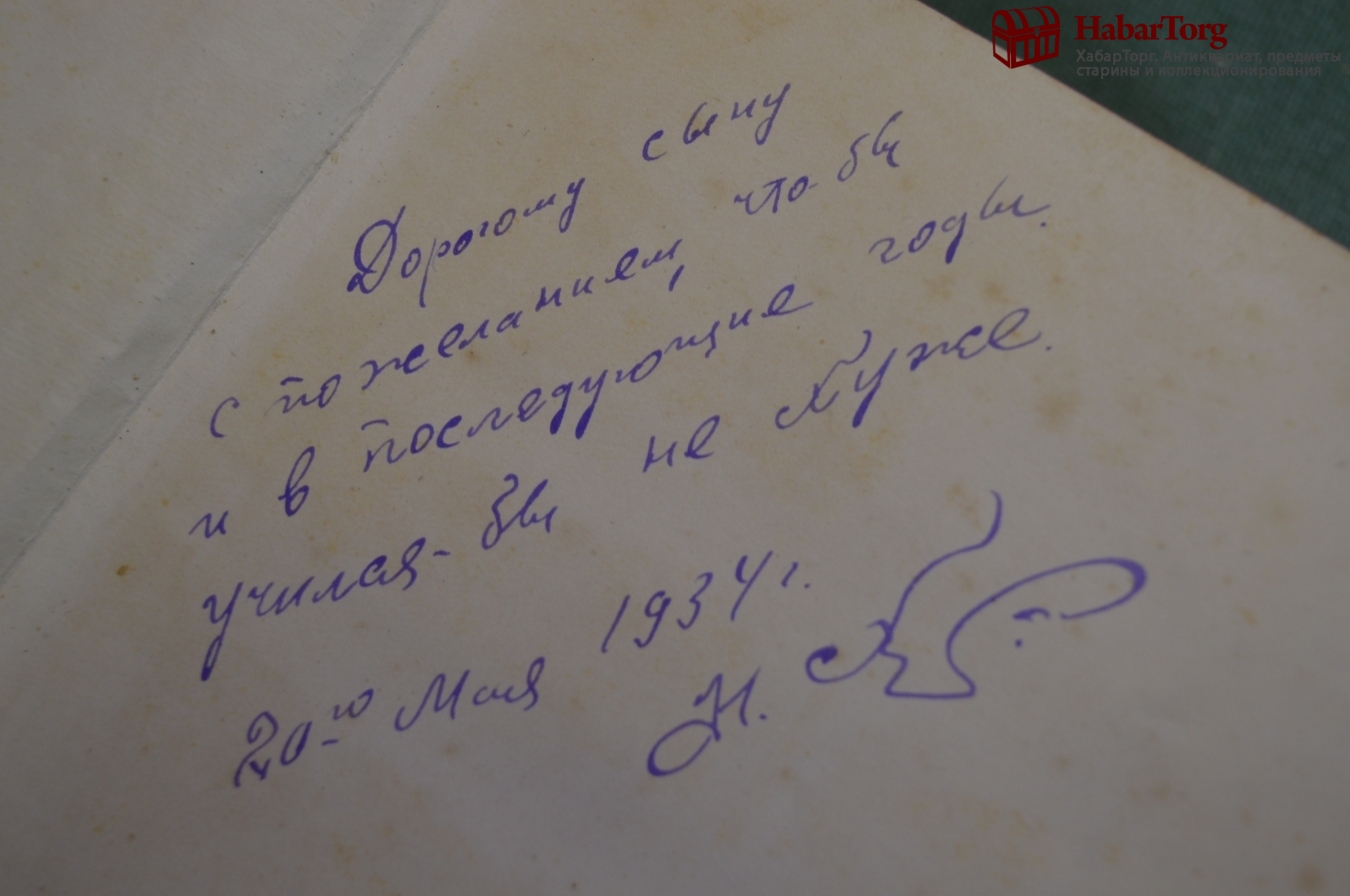 HabarTorg
ХабарТорг. Антиквариат, предметы
старины и коллекционирования
Дорогому сыну
с пожеланием, что-бы
и в последующие годы.
учился-бы не хуже.
20-го Мая 1934 г.
Н.